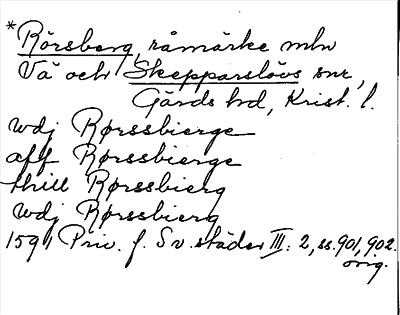 *Rörsberg, råmärke mln
Vä och Skepparslövs snr,
Gärds hd, Krist. l.
wdj Rørssbierge
aff Rørssbierge
thill Rørssbierg
wdj Rørssbierg
1591 Priv. f. Sv. städer III: 2, ss. 901, 902.
orig.